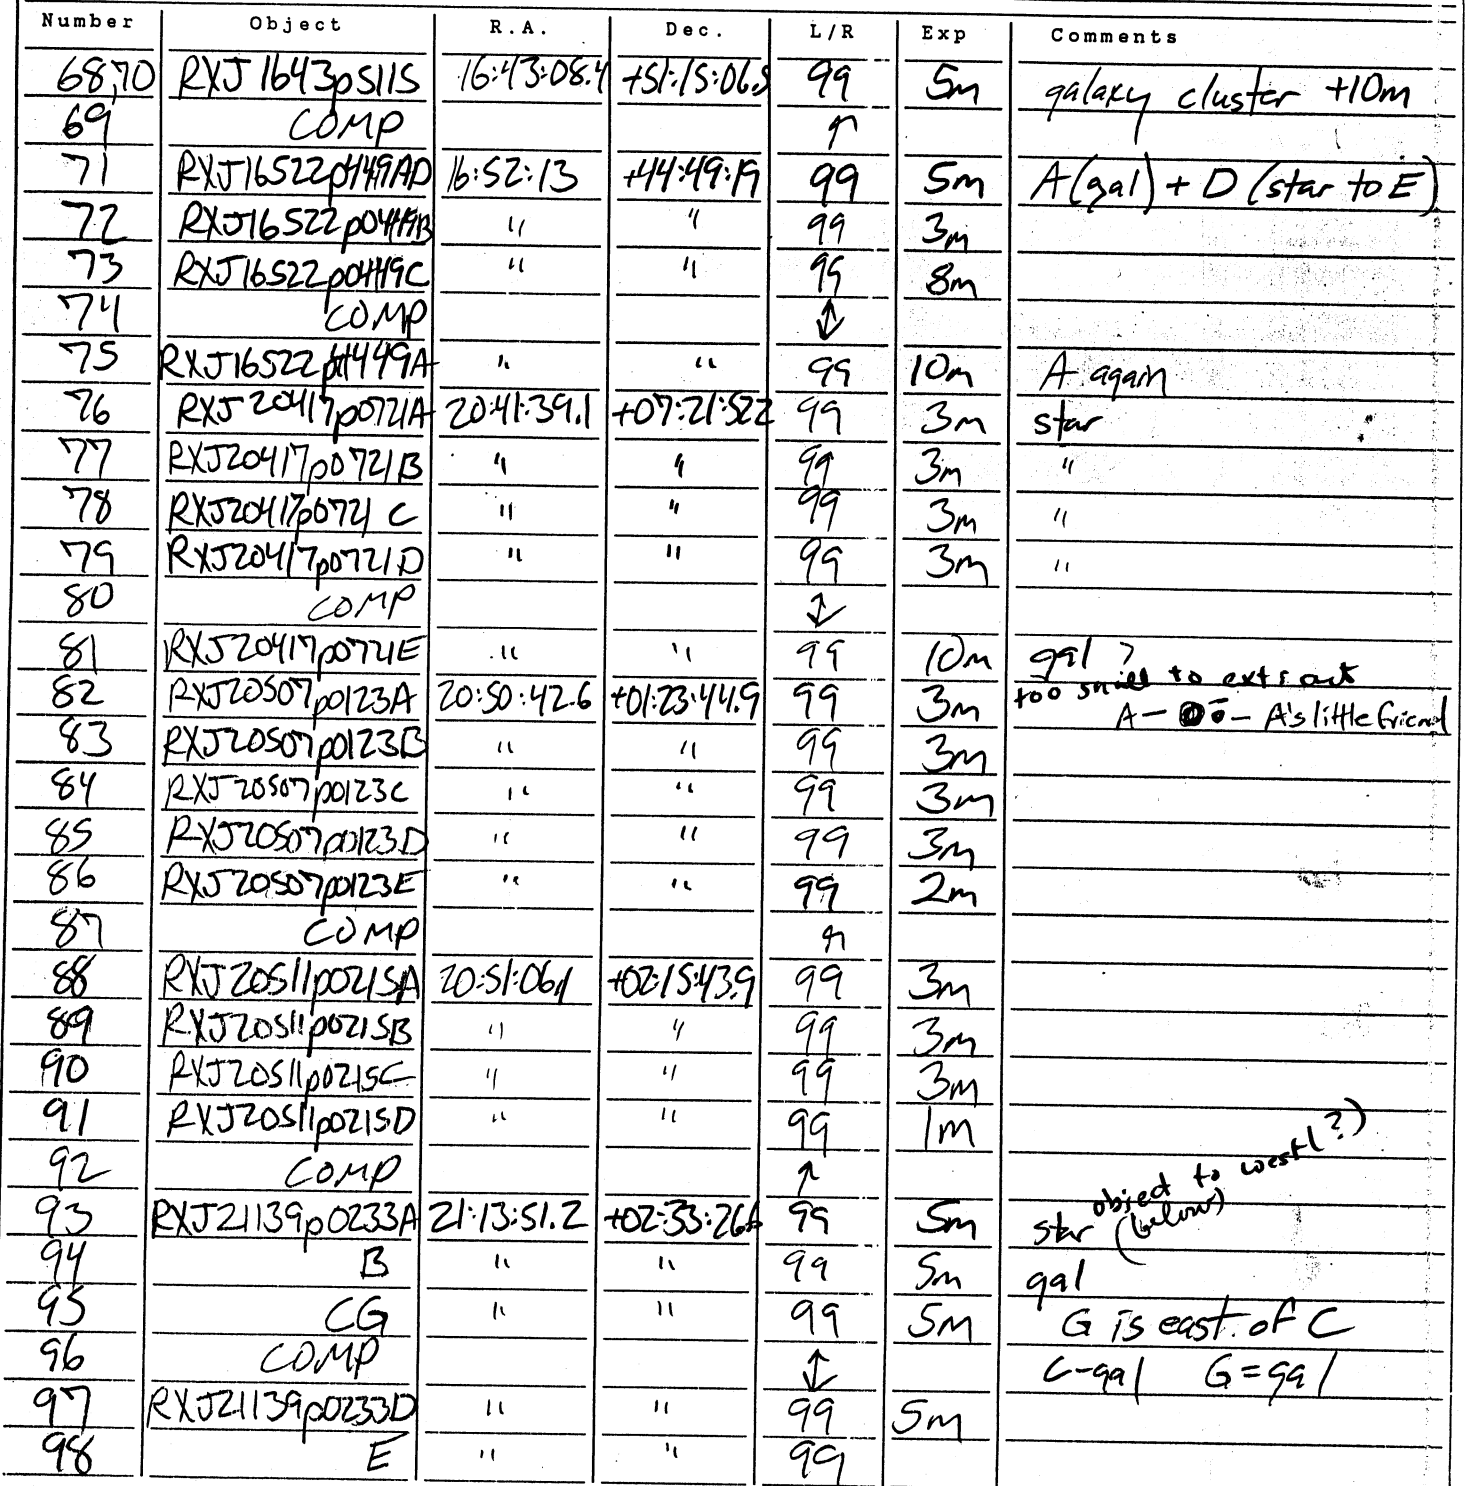 Number Object R.A. Dec. L/R Exp Comments
68,70 RXJ1643p5115 16:43:08.4 +51:15:06.5 99 5m galaxy cluster +10m
69 COMP ↑
71 RXJ16522p4449AD 16:52:13 +44:49:19 99 5m A(gal) + D (star to E)
72 RXJ16522p0449B " " 99 3m
73 RXJ16522p0449C " " 99 8m
74 COMP ↕
75 RXJ16522p4449A " " 99 10m A again
76 RXJ20417p0721A 20:41:39.1 +07:21:522 99 3m star
77 RXJ20417p0721B " " 99 3m "
78 RXJ20417p0721C " " 99 3m "
79 RXJ20417p0721D " " 99 3m "
80 COMP ↕
81 RXJ20417p0721E " " 99 10m gal ?
too small to extract
82 RXJ20507p0123A 20:50:42.6 +01:23:44.9 99 3m A - - A's little friend
83 RXJ20507p0123B " " 99 3m
84 RXJ20507p0123C " " 99 3m
85 RXJ20507p0123D " " 99 3m
86 RXJ20507p0123E " " 99 2m
87 COMP ↑
88 RXJ20511p0215A 20:51:06.1 +02:15:43.9 99 3m
89 RXJ20511p0215B " " 99 3m
90 RXJ20511p0215C " " 99 3m
91 RXJ20511p0215D " " 99 1m
92 COMP ↑
93 RXJ21139p0233A 21:13:51.2 +02:33:26.6 99 5m star object to west(?)
(below)
94 B " " 99 5m gal
95 CG " " 99 5m G is east of C
96 COMP ↕ C-gal G=gal
97 RXJ21139p0233D " " 99 5m
98 E " " 99